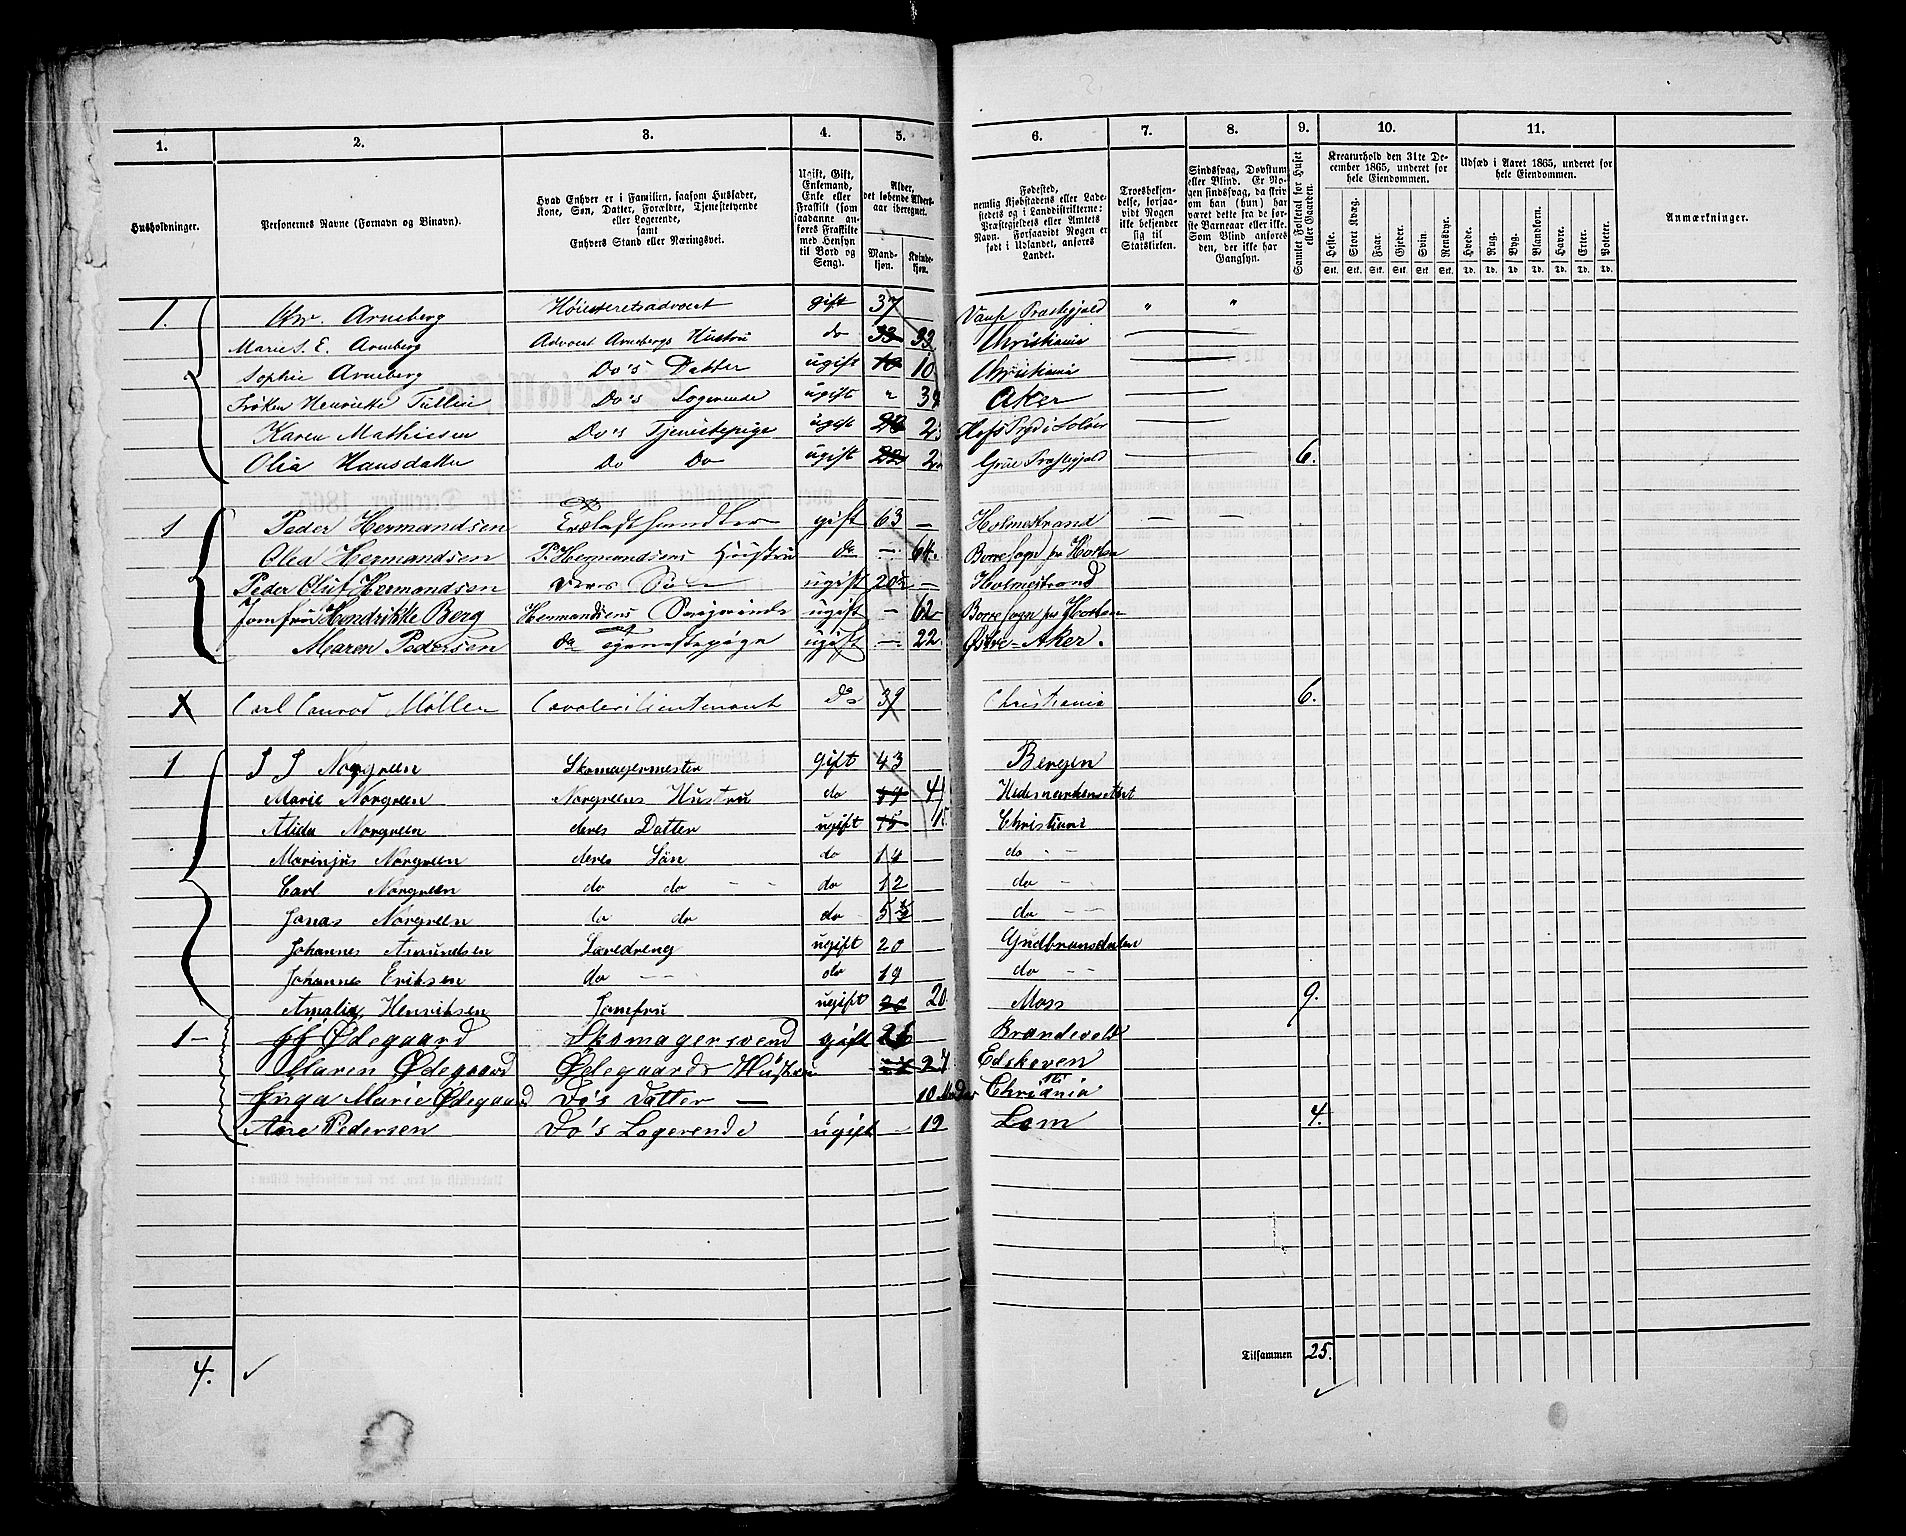 1.
2.
3.
4.
5.
6.
7.
8.
9.
10.
11.
Husholdninger.
Personernes Navne (Fornavn og Binavn).
Hvad Enhver er i Familien, saasom Husfader, Kone, Søn, Datter, Forældre, Tjenestetyende eller Logerende, samt Enhvers Stand eller Næringsvei.
Ugift, Gift, Enkemand, Enke eller Fraskilt (som saadanne anføres Fraskilte med Hensyn til Bord og Seng).
Alder, det løbende Aldersaar iberegnet.
Mandkjøn.
Kvindekjøn.
Fødested, nemlig Kjøbstadens eller Ladestedets og i Landdistrikterne: Præstegjeldets eller Amtets Navn. Forsaavidt Nogen er født i Udlandet, anføres Landet.
Troesbekjendelse, forsaavidt Nogen ikke bekjender sig til Statskirken.
Sindssvag, Døvstum eller Blind. Er Nogen sindssvag, da skriv om han (hun) har været dette fra de første Barneaar eller ikke. Som Blind anføres den, der ikke har Gangsyn.
Samlet Folketal for Huset eller Gaarden.
Kreaturhold den 31te December 1865, underet for hele Eiendommen.
Heste. Stort Kvæg. Faar. Gjeder. Svin. Rensdyr.
Stk. Stk. Stk. Stk. Stk. Stk.
Udsæd i Aaret 1865, underet for hele Eiendommen.
Hvede. Rug. Byg. Blandkorn. Havre. Erter. Poteter.
Td. Td. Td. Td. Td. Td. Td.
Anmærkninger.
1. Chr. Arneberg Høiesteretsadvocat gift 37 Vang Præstegjeld " "
Marie S. E. Arneberg Advocat Arnebergs Hustru do 33 33 Christiania
Sophie Arneberg Do's Datter ugift 10 10 Christiania
Frøken Henriette Tullin Do's Logerende ugift " Aker
Karen Mathiesen Do's Tjenestepige ugift Hofs Prgd i Solør
Olia Hansdatter Do Do ugift Grue Præstegjeld 6.
1 Peder Hermandsen gift 63 — Holmestrand — —
Olea Hermandsen P. Hermandsens Hustru do — 64. Borre sogn pr Horten
Peder Oluf Hermandsen deres Søn ugift — Holmestrand
Jomfru Hendrikke Berg Hermandsens ugift — 62 Borre sogn pr Horten
Maren Pedersen do Tjenestepige ugift — 22. Østre-Aker.
Carl Conrad Møller Cavalerilieutenant do 39 Christiania 6.
1 J J Norgreen Skomagermester gift 43 Bergen
Marie Norgreen Norgreens Hustru do 41 Hedemarkens Amt
Alida Norgreen deres Datter ugift 15 15 Christiani
Marinius Norgreen deres Søn do 14 do -
Carl Norgreen do do - - do 12 do -
Jonas Norgreen do do do 5 do - -
Johannes Amundsen Læredreng ugift 20 Gudbransdalen
Johannes Eriksen do - - do 19 do - -
Amalia Henriksen Jomfru ugift 20 20 Moss 9.
1- Ødegaard Skomagersvend gift 26 Brandevold
Maren Ødegaard Ødegaards Hustru 27 Edskoven
Inga Marie Ødegaard Do's Datter — 10 Mdar Christiania
Ane Pedersen Do's Logerende ugift - 19 Lom 4.
4. ✓
Tilsammen 25.
✓